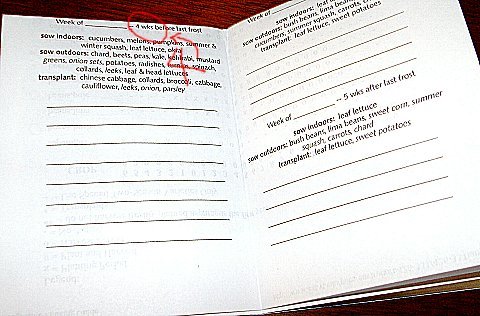 Week of - 4 wks before last frost
sow indoors: cucumbers, melons, pumpkins, summer &
winter squash, leaf lettuce, okra
sow outdoors: chard, beets, peas, kale, kohlrabi, mustard
greens, onion sets, potatoes, radishes, turnips, spinach,
collards, leeks, leaf & head lettuces
transplant: chinese cabbage, collards, broccoli, cabbage,
cauliflower, leeks, onion, parsley
Week of
sow indoors: leaf
sow outdoors: bush beans, lima
cucumbers, summer squash, carrots,
transplant: leaf lettuce, sweet potatoes
Week of ~ 5 wks after last frost
sow indoors: leaf lettuce
sow outdoors: bush beans, lima beans, sweet corn, summer
squash, carrots, chard
transplant: leaf lettuce, sweet potatoes